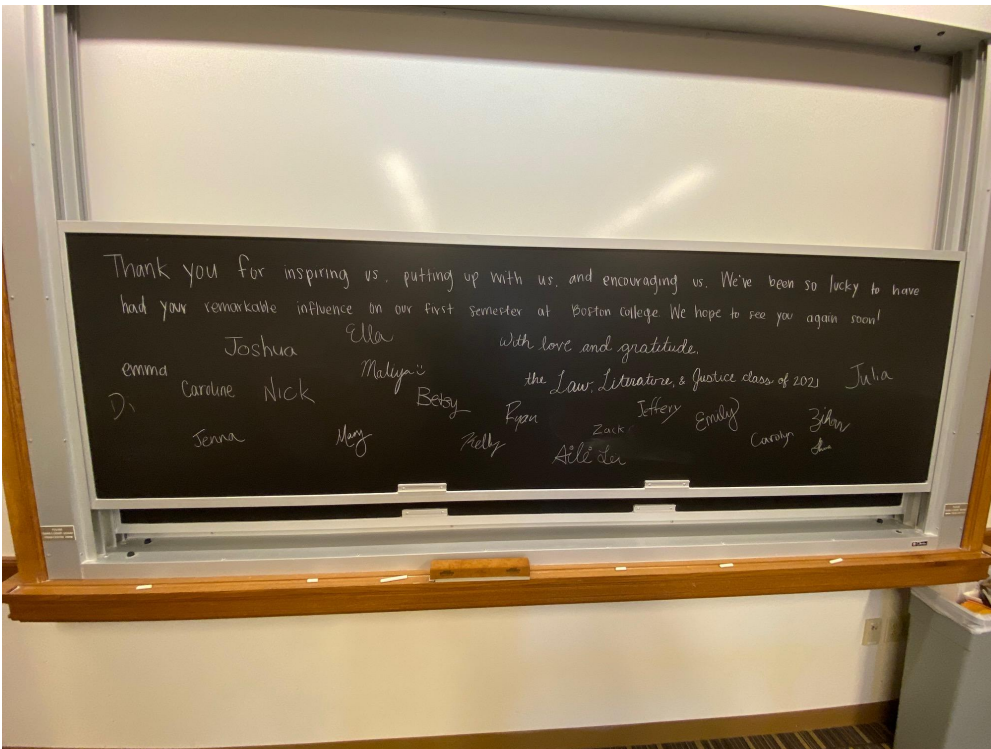 Thank you for inspiring us, putting up with us, and encouraging us. We've been so lucky to have
had your remarkable influence on our first semester at Boston College. We hope to see you again soon!
With love and gratitude,
the Law, Literature, & Justice class of 2021
Ella
Joshua
emma
Caroline
Nick
Betsy
Ryan
Jeffery
Emily
Julia
Zihan
Jenna
Mary
Kelly
Zack
Carolyn